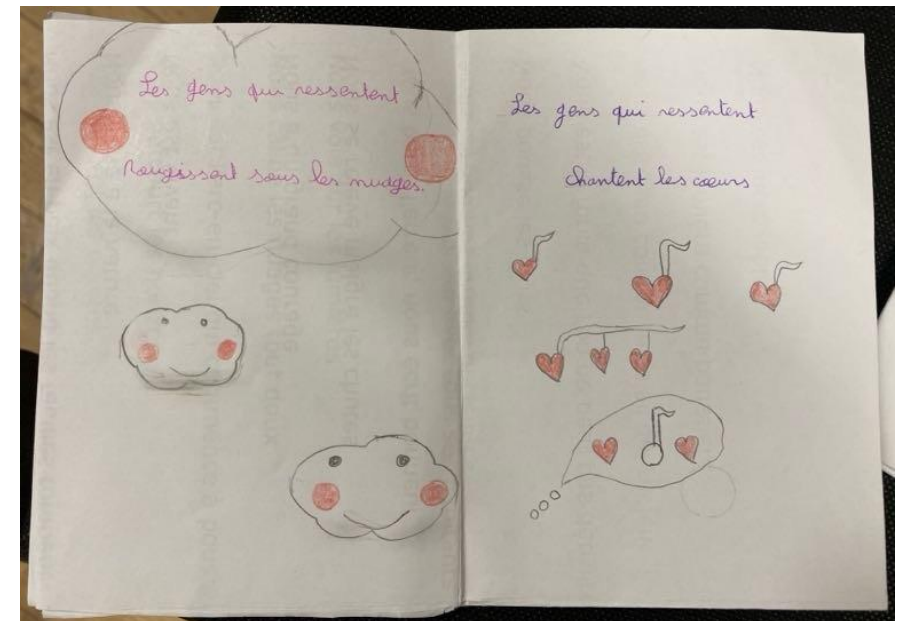 Les gens qui ressentent
Rougissent sous les nudges.
Les gens qui ressentent
chantent les coeurs